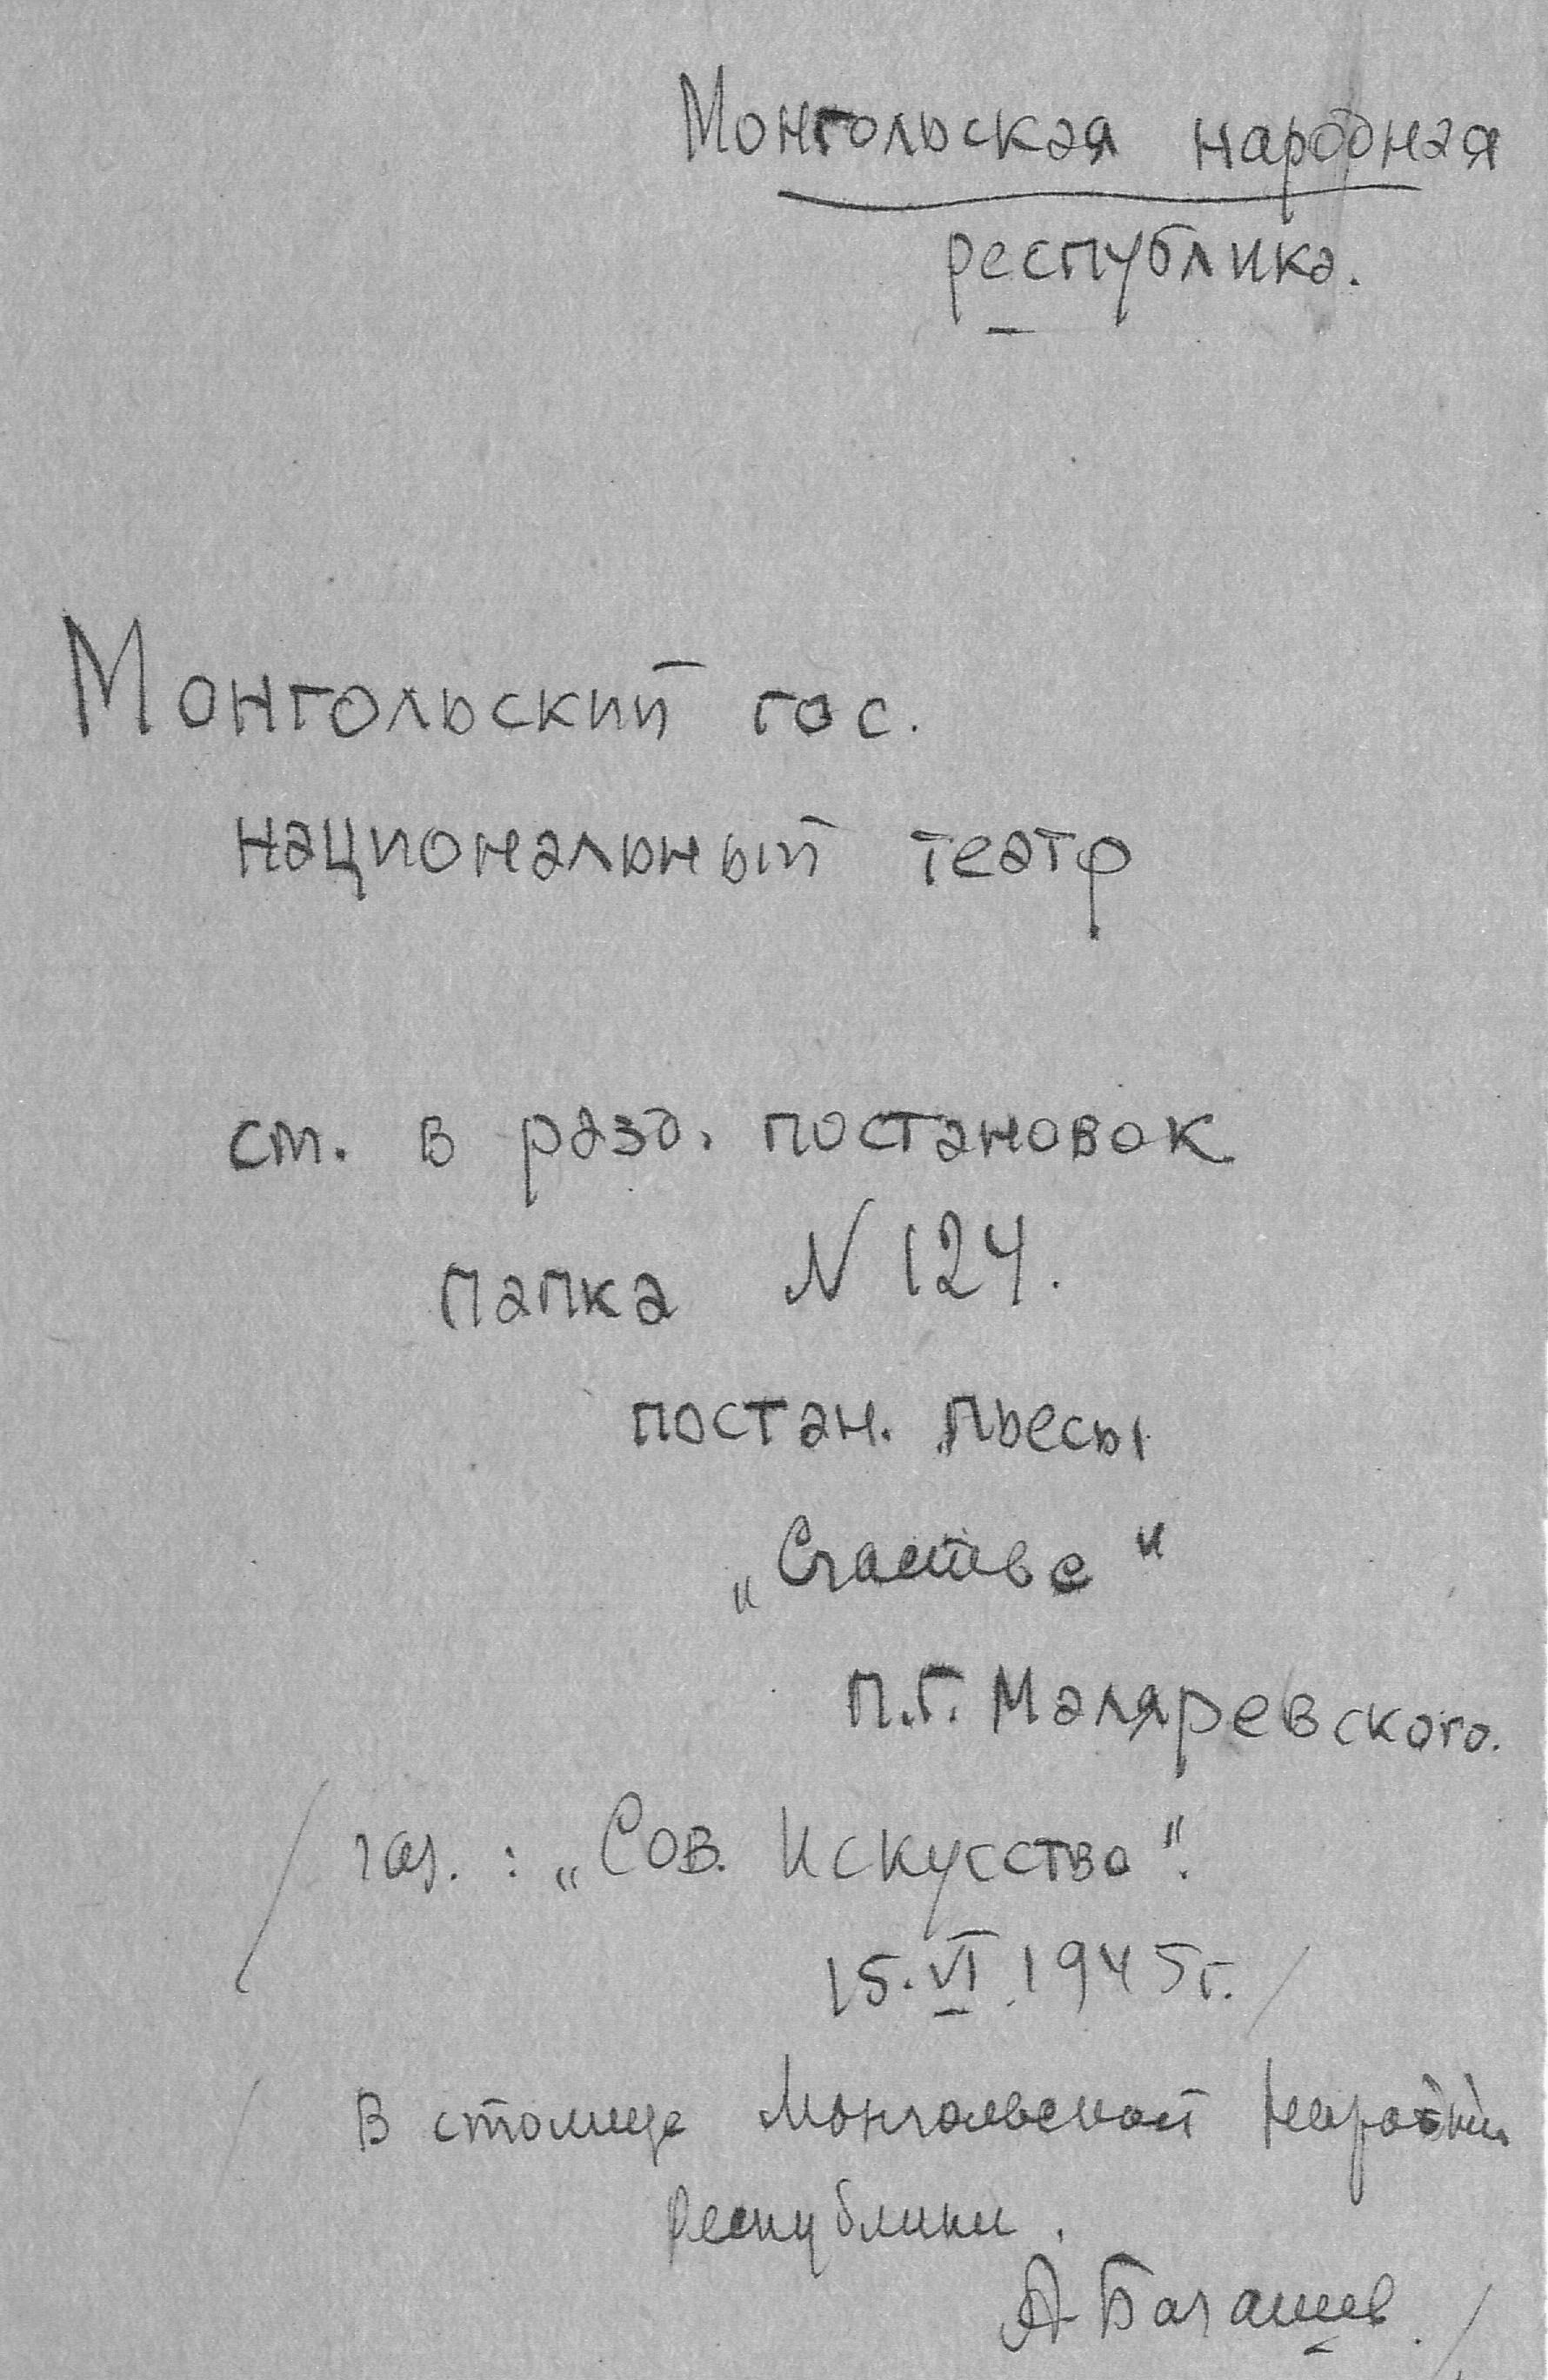 Монгольская народная
республика.
Монгольский гос.
национальный театр
см. в разд. постановок
папка N 124.
постан. пьесы
„Счастье"
П.Г. Маляревского.
/ газ. : „Сов. Искусство".
15.VI.1945г. /
/ В столице Монгольской Народной
Республики.
А